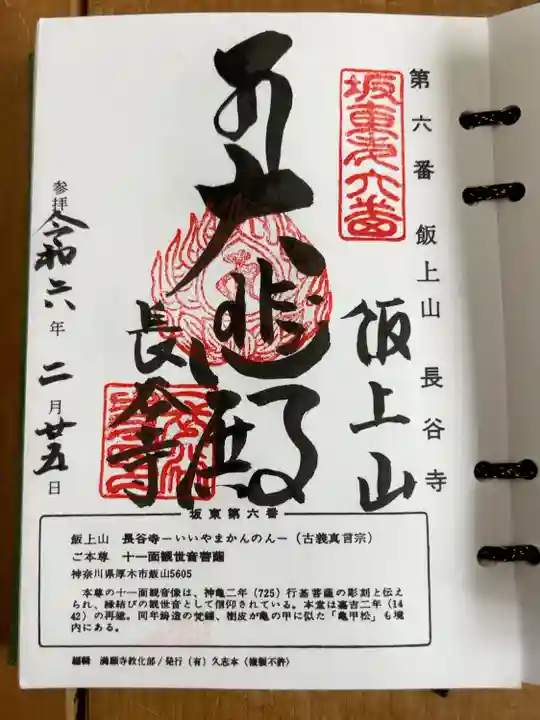 第六番 飯上山 長谷寺
坂東第六番
飯上山
大悲殿
長谷寺
参拝 令和六年 二月廿五日
坂東第六番
飯上山 長谷寺ーいいやまかんのんー（古義真言宗）
ご本尊 十一面観世音菩薩
神奈川県厚木市飯山5605
本尊の十一面観音像は、神亀二年（725）行基菩薩の彫刻と伝え
られ、縁結びの観世音として信仰されている。本堂は嘉吉二年（14
42）の再建。同年鋳造の梵鐘、樹皮が亀の甲に似た「亀甲松」も境
内にある。
編輯 満願寺教化部／発行（有）久志本〈複製不許〉